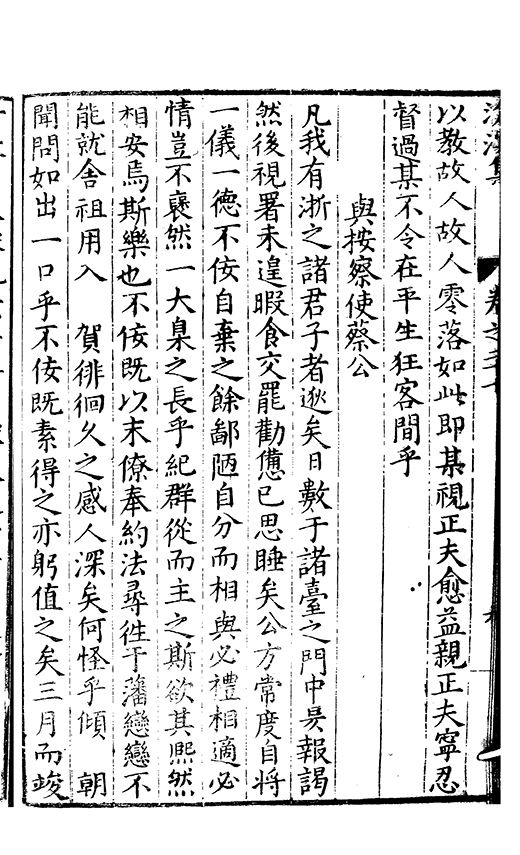 以教故人故人零落如此即某視正夫愈益親正夫寧忍
督過某不令在平生狂客間乎
與按察使蔡公
凡我有浙之諸君子者逖矣日數于諸臺之門中昃報謁
然後視署未遑暇食交罷勸憊已思睡矣公方常度自將
一儀一德不佞自棄之餘鄙陋自分而相與必禮相適必
情豈不褎然一大臬之長乎紀群從而主之斯欲其熙然
相安焉斯樂也不佞既以末僚奉約法尋徃于藩戀戀不
能就舍祖用入 賀徘徊久之感人深矣何怪乎傾 朝
聞問如出一口乎不佞既素得之亦躬值之矣三月而竣